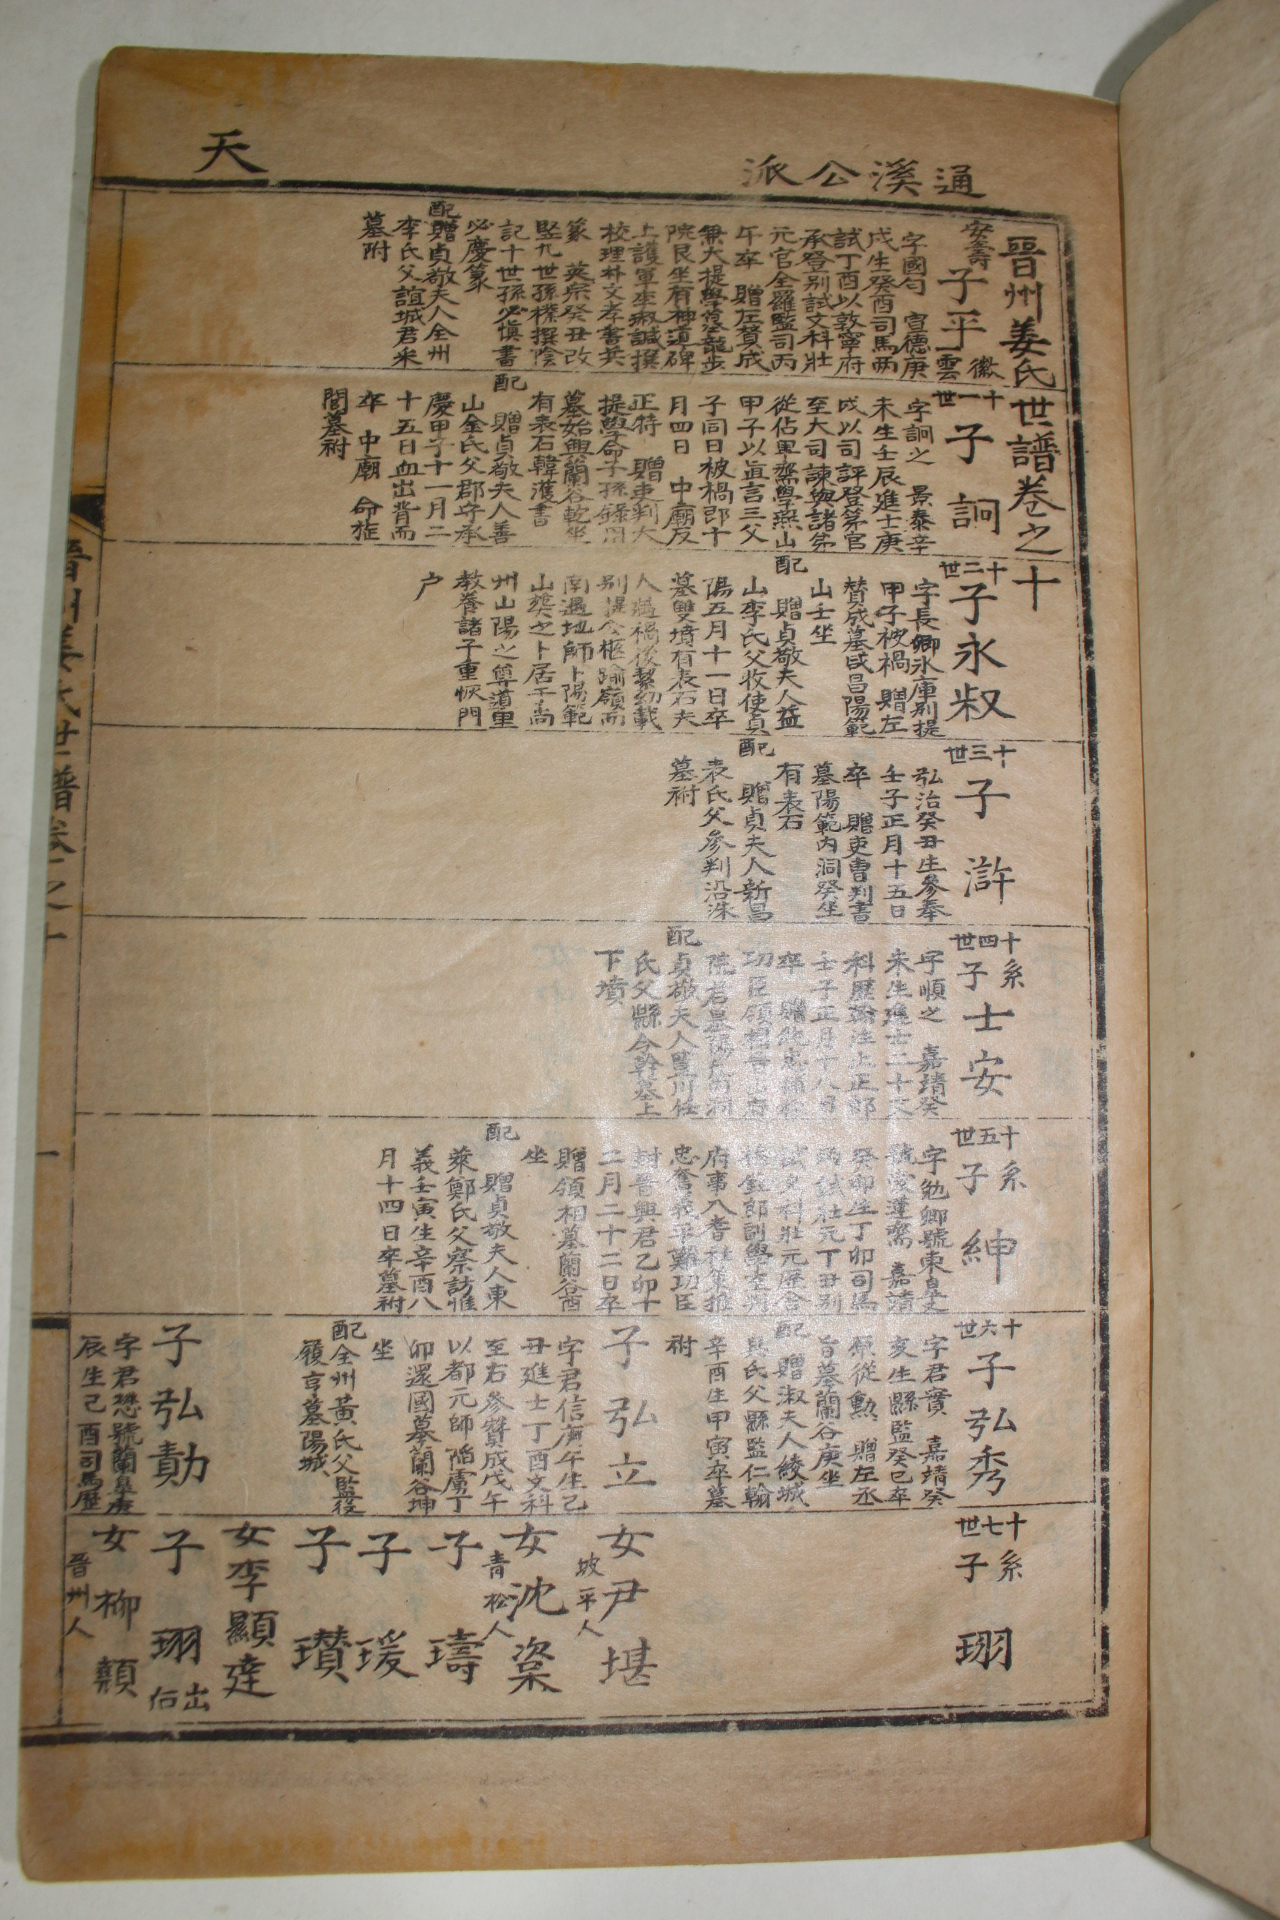 通溪公派
天
晋州姜氏世譜卷之十
安壽
子子平
徽雲
字國勻 宣德庚
戌生癸酉司馬兩
試丁酉以敦寧府
承登別試文科壯
元官全羅監司丙
午卒 贈左贊成
兼大提學墓龍步
院艮坐有神道碑
上護軍李淑瑊撰
校理朴文孝書兵
篆 英宗癸丑改
竪九世孫樸撰陰
記十世孫必愼書
必慶篆
配贈貞敬夫人全州
李氏父誼城君寀
墓附
十一世
子詗
字詗之 景泰辛
未生壬辰進士庚
戌以司評登第官
至大司諫與諸弟
從佔畢齋學燕山
甲子以直言三父
子同日被禍卽十
月四日 中廟反
正特 贈吏判大
提學命子孫錄用
墓始興蘭谷乾坐
有表石韓濩書
配 贈貞敬夫人善
山金氏父郡守承
慶甲子十一月二
十五日血出背而
卒 中廟 命旌
閭墓祔
十二世
子永叔
字長卿氷庫別提
甲子被禍 贈左
贊成墓咸昌陽範
山壬坐
配 贈貞敬夫人益
山李氏父牧使貞
陽五月十一日卒
墓雙墳有表石夫
人遘禍後絜幼載
別提公柩踰嶺而
南遇地師卜陽範
山奠之卜居于尙
州山陽之尊道里
敎養諸子重恢門
戶
十三世
子滸
弘治癸丑生參奉
壬子正月十五日
卒 贈吏曹判書
墓陽範內洞癸坐
有表石
配 贈貞夫人新昌
表氏父參判沿洙
墓祔
十四世
系子士安
字順之 嘉靖癸
未生進士二十文
科歷翰注上正郞
壬子正月十八日
卒
功臣領相晋上府
院君墓陽範內洞
配貞敬夫人豊川任
氏父縣令幹墓上
下墳
十五世
系子紳
字勉卿號東皐又
號愛蓮齋 嘉靖
癸卯生丁卯司馬
兩試壯元丁丑別
試文科壯元歷舍
府事入耆社策推
忠奮義平難功臣
封晋興君乙卯十
二月二十二日卒
贈領相墓蘭谷酉
坐
配 贈貞敬夫人東
萊鄭氏父察訪惟
義壬寅生辛酉八
月十四日卒墓祔
十六世
子弘秀
字君實 嘉靖癸
亥生縣監癸巳卒
原從勳 贈左丞
旨墓蘭谷庚坐
配 贈淑夫人綾城
具氏父縣監仁翰
辛酉生甲寅卒墓
祔
子弘立
字君信庚午生己
丑進士丁酉文科
至右參贊成戊午
以都元師陷虜丁
卯還國墓蘭谷坤
坐
配全州黃氏父監役
領亨墓陽城
子弘勣
字君懋號蘭皐庚
辰生己酉司馬歷
十七世
系子珝
女尹堪
坡平人
女沈楶
青松人
子璹
子瑗
子瓚
女李顯達
子珝
出后
女柳顥
晋州人
晋州姜氏世譜卷之十
一